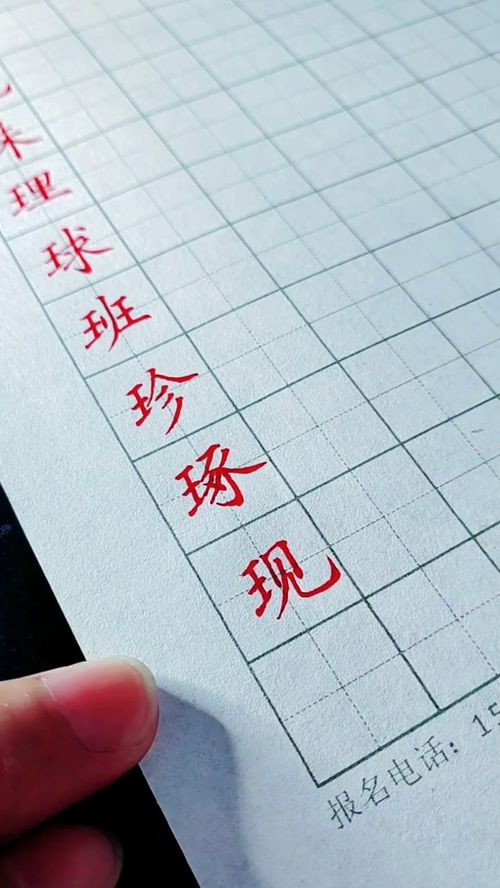 理
球
班
珍
琢
现
报名电话：15